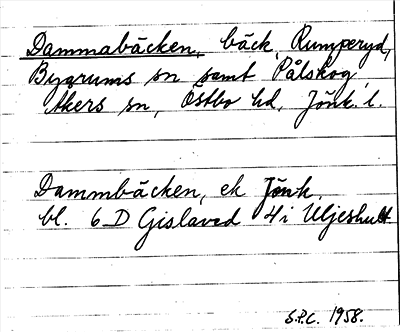 Dammabäcken, bäck, Rumperyd,
Byarums sn samt Pålskog,
Åkers sn, Östbo hd, Jönk. l.
Dammbäcken, ek Jönk.
bl. 6 D Gislaved 4i Uljeshult
S.P.C. 1958.